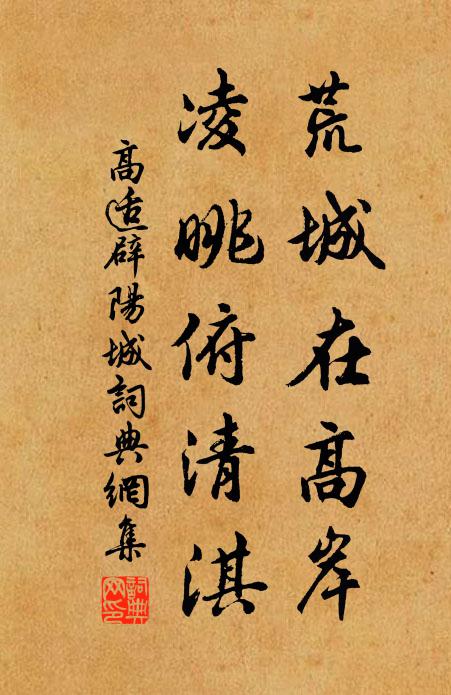 荒城在高岸
凌眺俯清淇
高适辟陽城詞典網集
詞典網印